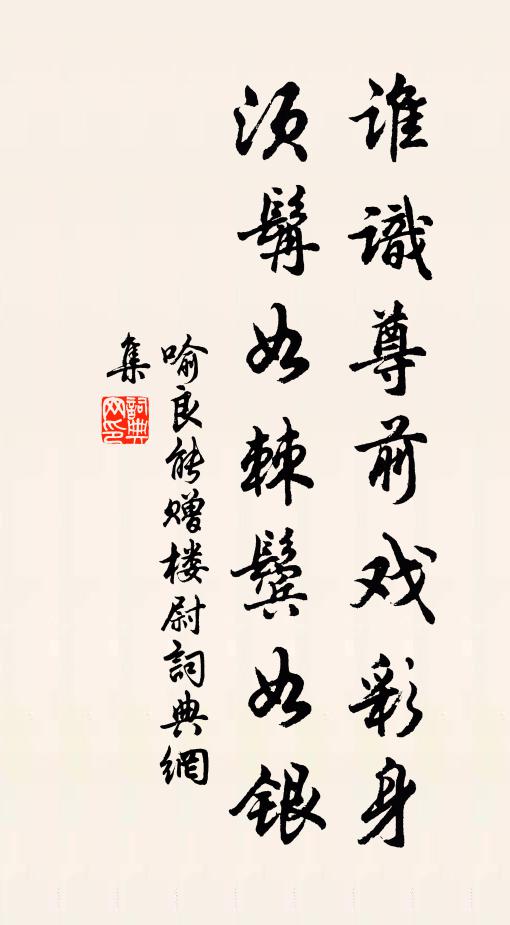 谁識尊前戏彩身
须髯如棘鬓如银
喻良能赠楼尉詞典網
集
詞典網印